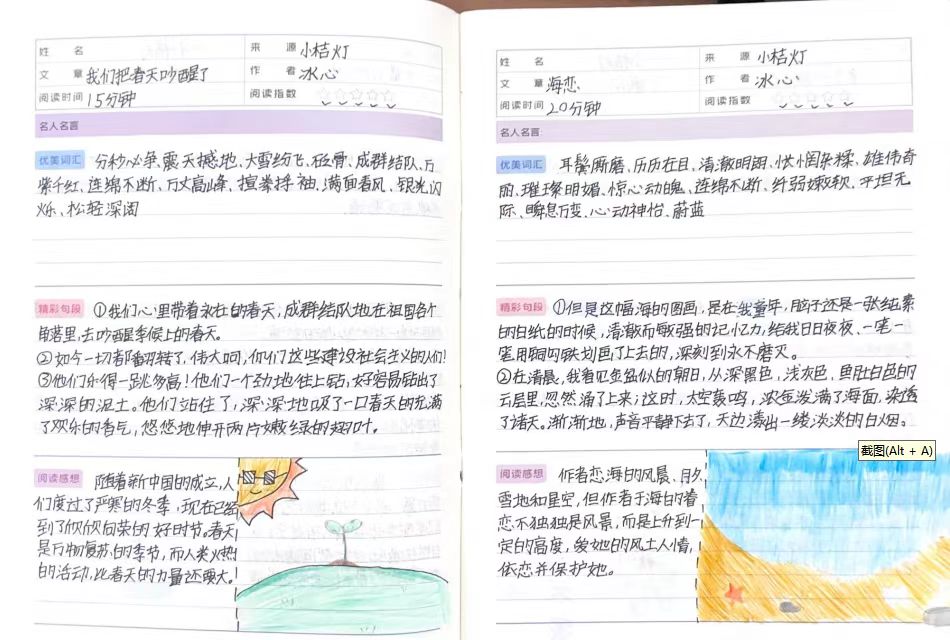 姓 名
来 源 小桔灯
文 章 我们把春天吵醒了
作 者 冰心
阅读时间 15分钟
阅读指数 ☆☆☆☆☆
名人名言
优美词汇 分秒必争、震天撼地、大雪纷飞、砭骨、成群结队、万
紫千红、连绵不断、万丈高峰、揎拳捋袖、满面春风、银光闪
烁、松轻深闺
精彩句段 ①我们心里带着永在的春天,成群结队地在祖国各个
角落里,去吵醒季候上的春天。
②如今一切都翻转了,伟大呵,你们这些建设社会主义的人们!
③他们乐得一跳多高!他们一个劲地往上钻,好容易钻出了
深深的泥土。他们站住了,深深地吸了一口春天的充满
了欢乐的香气,悠悠地伸开两片嫩绿的翅叶。
阅读感想 随着新中国的成立,人
们度过了严寒的冬季,现在已经
到了欣欣向荣的好时节。春天
是万物复苏的季节,而人类火热
的活动,比春天的力量还要大。
姓 名
来 源 小桔灯
文 章 海恋
作 者 冰心
阅读时间 20分钟
阅读指数 ☆☆☆☆☆
名人名言
优美词汇 耳鬓厮磨、历历在目、清澈明朗、怅惘杂糅、雄伟奇
丽、璀璨明媚、惊心动魄、莲绵不断、纤弱嫩软、平坦无
际、瞬息万变、心动神怡、蔚蓝
精彩句段 ①但是这幅海的图画,是在我童年,脑子还是一张纯素
的白纸的时候,清澈而敏强的记忆力,给我日日夜夜、一笔一
笔用铜钩铁划画了上去的,深刻到永不磨灭。
②在清晨,我看见金盆似的朝日,从深黑色,浅灰色,鱼肚白色的
云层里,忽然涌了上来;这时,太空轰鸣,浓金泼满了海面,染透
了诸天。渐渐地,声音平静下去了,天边漾出一缕淡淡的白烟。
阅读感想 作者恋海的风晨、月夕、
雪地和星空,但作者于海的眷
恋不独独是风景,而是上升到一
定的高度,爱她的风土人情,
依恋并保护她。
截图(Alt + A)